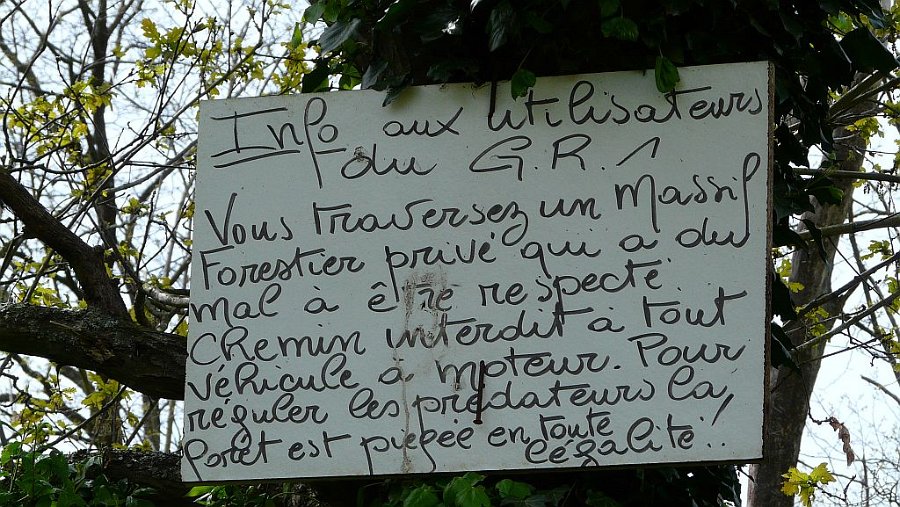 Info aux Utilisateurs
du G.R. 1
Vous traversez un Massif
Forestier privé qui a du
mal à être respecté.
Chemin interdit à tout
véhicule à moteur. Pour
réguler les prédateurs la
foret est piégée en toute
légalité!!